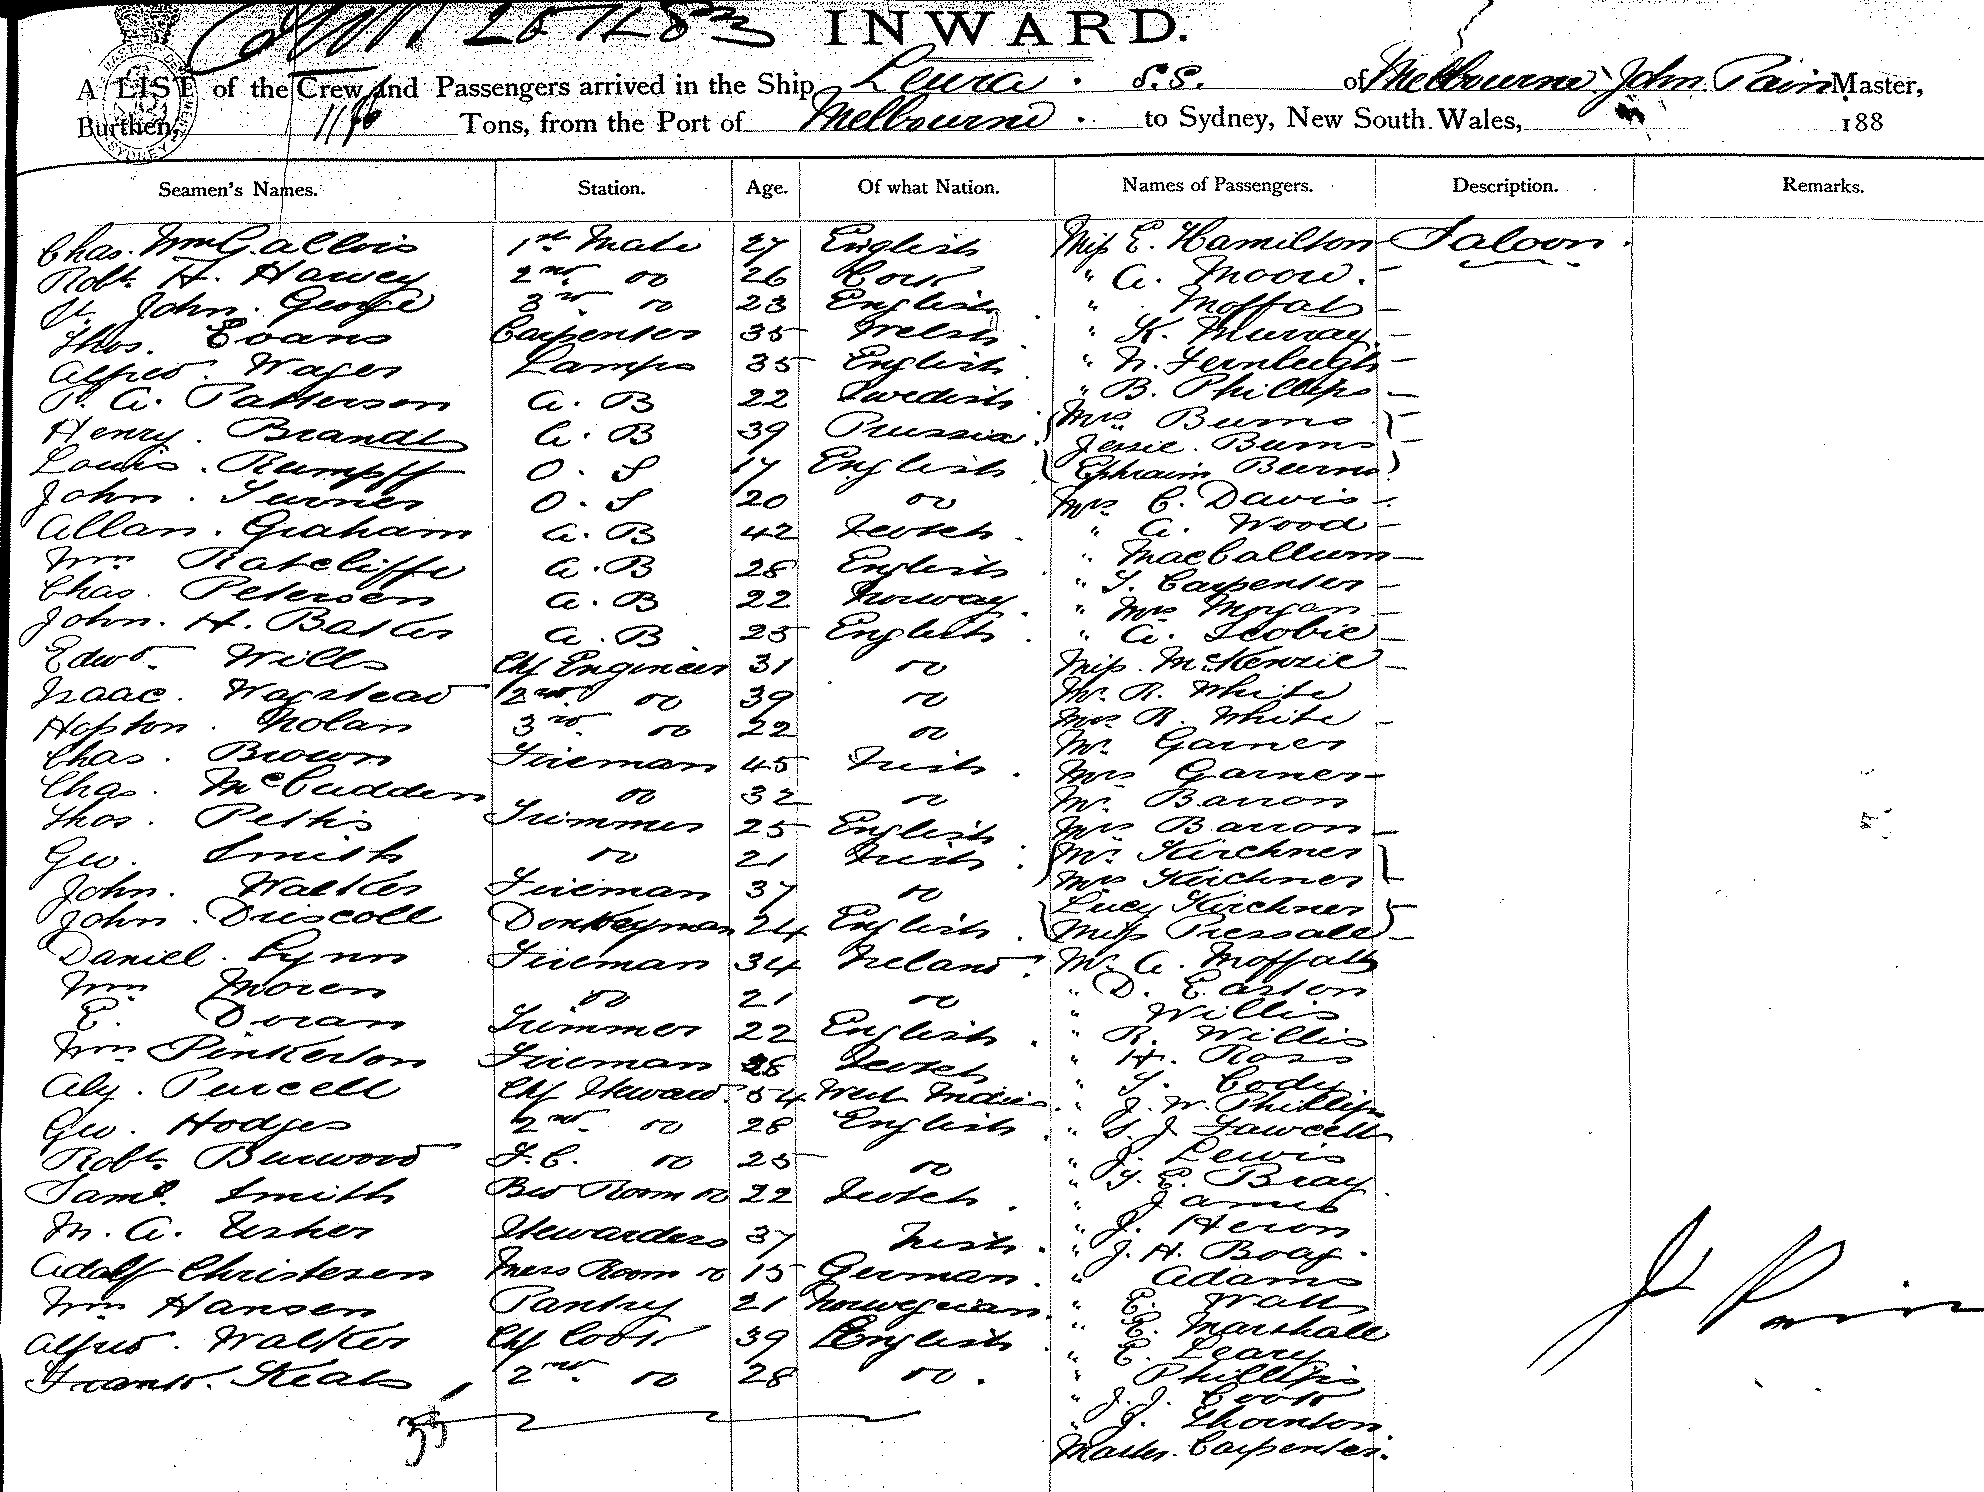 INWARD.
A LIST of the Crew and Passengers arrived in the Ship Leura. S.S. of Melbourne John Pain Master,
Burthen, Tons, from the Port of Melbourne. to Sydney, New South Wales, 188
Seamen's Names. Station. Age. Of what Nation. Names of Passengers. Description. Remarks.
Chas. Wm Gallois 1st Mate 27 English Miss E. Hamilton - Saloon.
Robt. H. Harvey 2nd. do 26 Cork " A. Moore. -
St. John. George 3rd. do 23 English. " Moffat -
Thos. Evans Carpenter 35 Welsh. " K. Murray. -
Alfred. Wager Lamps 35 English. " N. Fernleigh -
P. A. Patterson A. B 22 Swedish. " B. Phillips -
Henry. Brandt A. B 39 Prussia. Mrs Burns -
Louis. Rumpff O. S 17 English Jessie. Burns -
John. Turner O. S 20 do Ephraim Burns
Allan. Graham A. B 42 Scotch. Mrs C. Davis -
Wm Ratcliffe A. B 28 English. " A. Wood -
Chas. Peterson A. B 22 Norway. " MacCallum -
John. H. Barker A. B. 25 English. " T. Carpenter -
Edwd. Wills Chf Engineer 31 do " Mrs Morgan -
Isaac. Wagstead 2nd. do 39 do " A. Scobie -
Hopton. Nolan 3rd. do 22 do Miss. McKenzie -
Chas. Brown Fireman 45 Irish. Mr. R. White
Chas. McCudden do 32 do Mrs R. White -
Thos. Pettis Trimmer 25 English Mr. Garner
Geo. Smith do 21 Irish. Mrs Garner -
John. Walker Fireman 37 do Mr. Barron
John. Driscoll Donkeyman 24 English. Mrs Barron -
Daniel. Lynn Fireman 34 Ireland. Mr. Kirchner
Wm Moren do 21 do Mrs Kirchner -
E. Doran Trimmer 22 English. Lucy Kirchner
Wm Pinkerton Fireman 28 Scotch Miss Pressall -
Alx. Purcell Chf Steward. 54 West Indies. Mr. A. Moffatt
Geo. Hodges 2nd. do 28 English. " D. Easton
Robt. Burwood F.C. do 25 do " Willis
Saml. Smith Bed Room do 22 Scotch. " R. Willis
M. A. Usher Stewardess 37 Irish. " H. Ross
Adolf Christesen Mess Room do 15 German. " T. Cody.
Wm Hansen Pantry 21 Norwegian. " J. W. Phillips
Alfred. Walker Chf Cook 39 English. " S. J. Fawcett
Frank. Keats 2nd. do 28 do. " J. Lewis
35
" T. E. Bray.
" James
" J. Heron
" J. H. Boag.
" Adams
" E. Watts
" R. Marshall
" E. Leary
" Phillips
" J. J. Cook
" J. Thornton.
Master. Carpenter.
Jn Pain